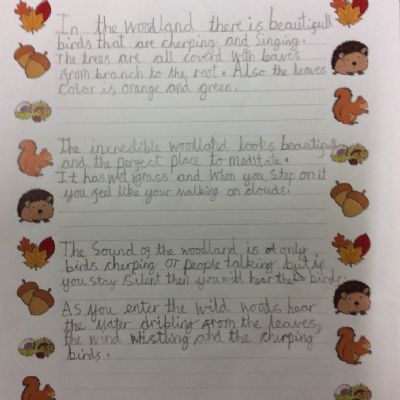 In the woodland there is beautifull
birds that are cherping and singing.
The trees are all coverd with leaves
from branch to the root. Also the leaves
color is orange and green.
The incredible woodland looks beautiful
and the perfect place to meditate.
It has wild grass and when you step on it
you feel like your walking on clouds.
The Sound of the woodland is only
birds cherping or people talking but if
you stay silent then you will hear the birds.
As you enter the wild woods hear
the water dribling from the leaves,
the wind whistling and the chirping
birds.